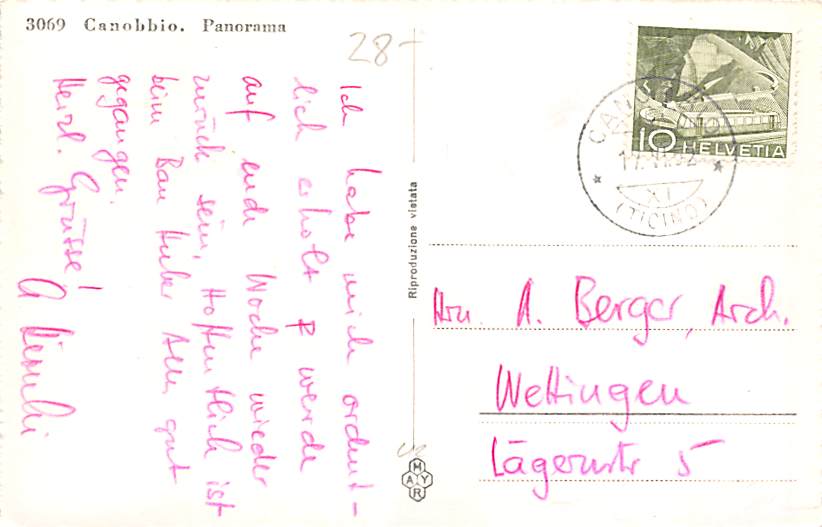 3069 Canobbio. Panorama
28-
Ich habe mich ordent-
lich erholt & werde
auf ende Woche wieder
zurück sein. Hoffentlich ist
beim Bau Huber alles gut
gegangen.
Herzl. Grüsse!
Riproduzione vietata
MAYR
10 HELVETIA
CANOBBIO
17. VI. 52
XI
(TICINO)
Hrn. A. Berger, Arch.
Wettingen
Lägernstr 5